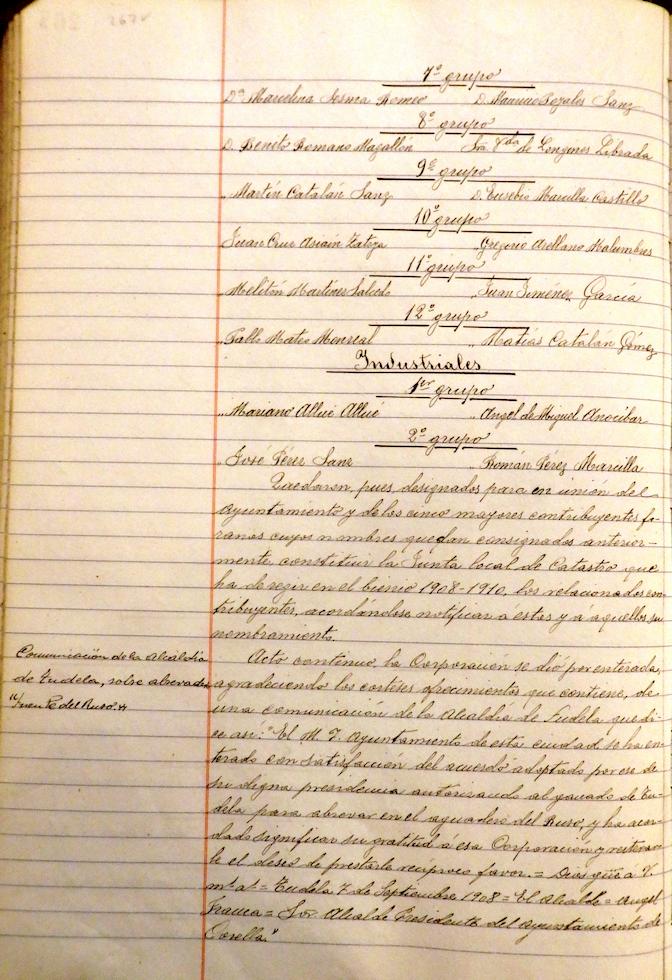 267v
7º grupo
Dª Marcelina Sesma Romeo D. Mauricio Pozales Sanz
8º grupo
D. Benito Romano Magallón Sra Vda de Longinos Librada
9º grupo
" Martín Catalán Sanz D. Eusebio Marcilla Castillo
10º grupo
" Juan Cruz Asiáin Zatega " Gregorio Arellano Malumbres
11º grupo
" Melitón Martínez Salcedo " Juan Jiménez García
12º grupo
" Pablo Mateo Monreal " Matías Catalán Gómez
Industriales
1er grupo
" Mariano Allué Allué " Angel de Miguel Anocíbar
2º grupo
" José Pérez Sanz " Román Pérez Marcilla
Quedaron, pues, designados para en unión del
Ayuntamiento y de los cinco mayores contribuyentes fo-
ranos cuyos nombres quedan consignados anterior-
mente, constituir la Junta local de Catastro que
ha de regir en el bienio 1908-1910, los relacionados con-
tribuyentes, acordándose notificar á estos y á aquellos su
nombramiento.
Comunicación de la Alcaldía
de Tudela, sobre abrevadero
"Fuente del Ruso."
Acto continuo, la Corporación se dió por enterada,
agradeciendo los corteses ofrecimientos que contiene, de
una comunicación de la Alcaldía de Tudela que di-
ce así: "El M. I. Ayuntamiento de esta ciudad se ha en-
terado con satisfacción del acuerdo adoptado por ese de
su digna presidencia autorizando al ganado de Tu-
dela para abrevar en el aguadero del Ruso, y ha acor-
dado significar su gratitud á esa Corporación y reiterar-
le el deseo de prestarle recíproco favor.= Dios güe a V.
ms. as.= Tudela 7 de Septiembre 1908= El Alcalde= Angel
Frauca= Sor. Alcalde Presidente del Ayuntamiento de
Corella."